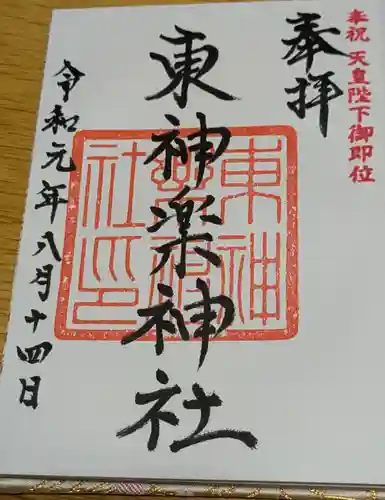 奉祝 天皇陛下御即位
奉拝
東神楽神社
東神
樂神
社印
令和元年八月十四日